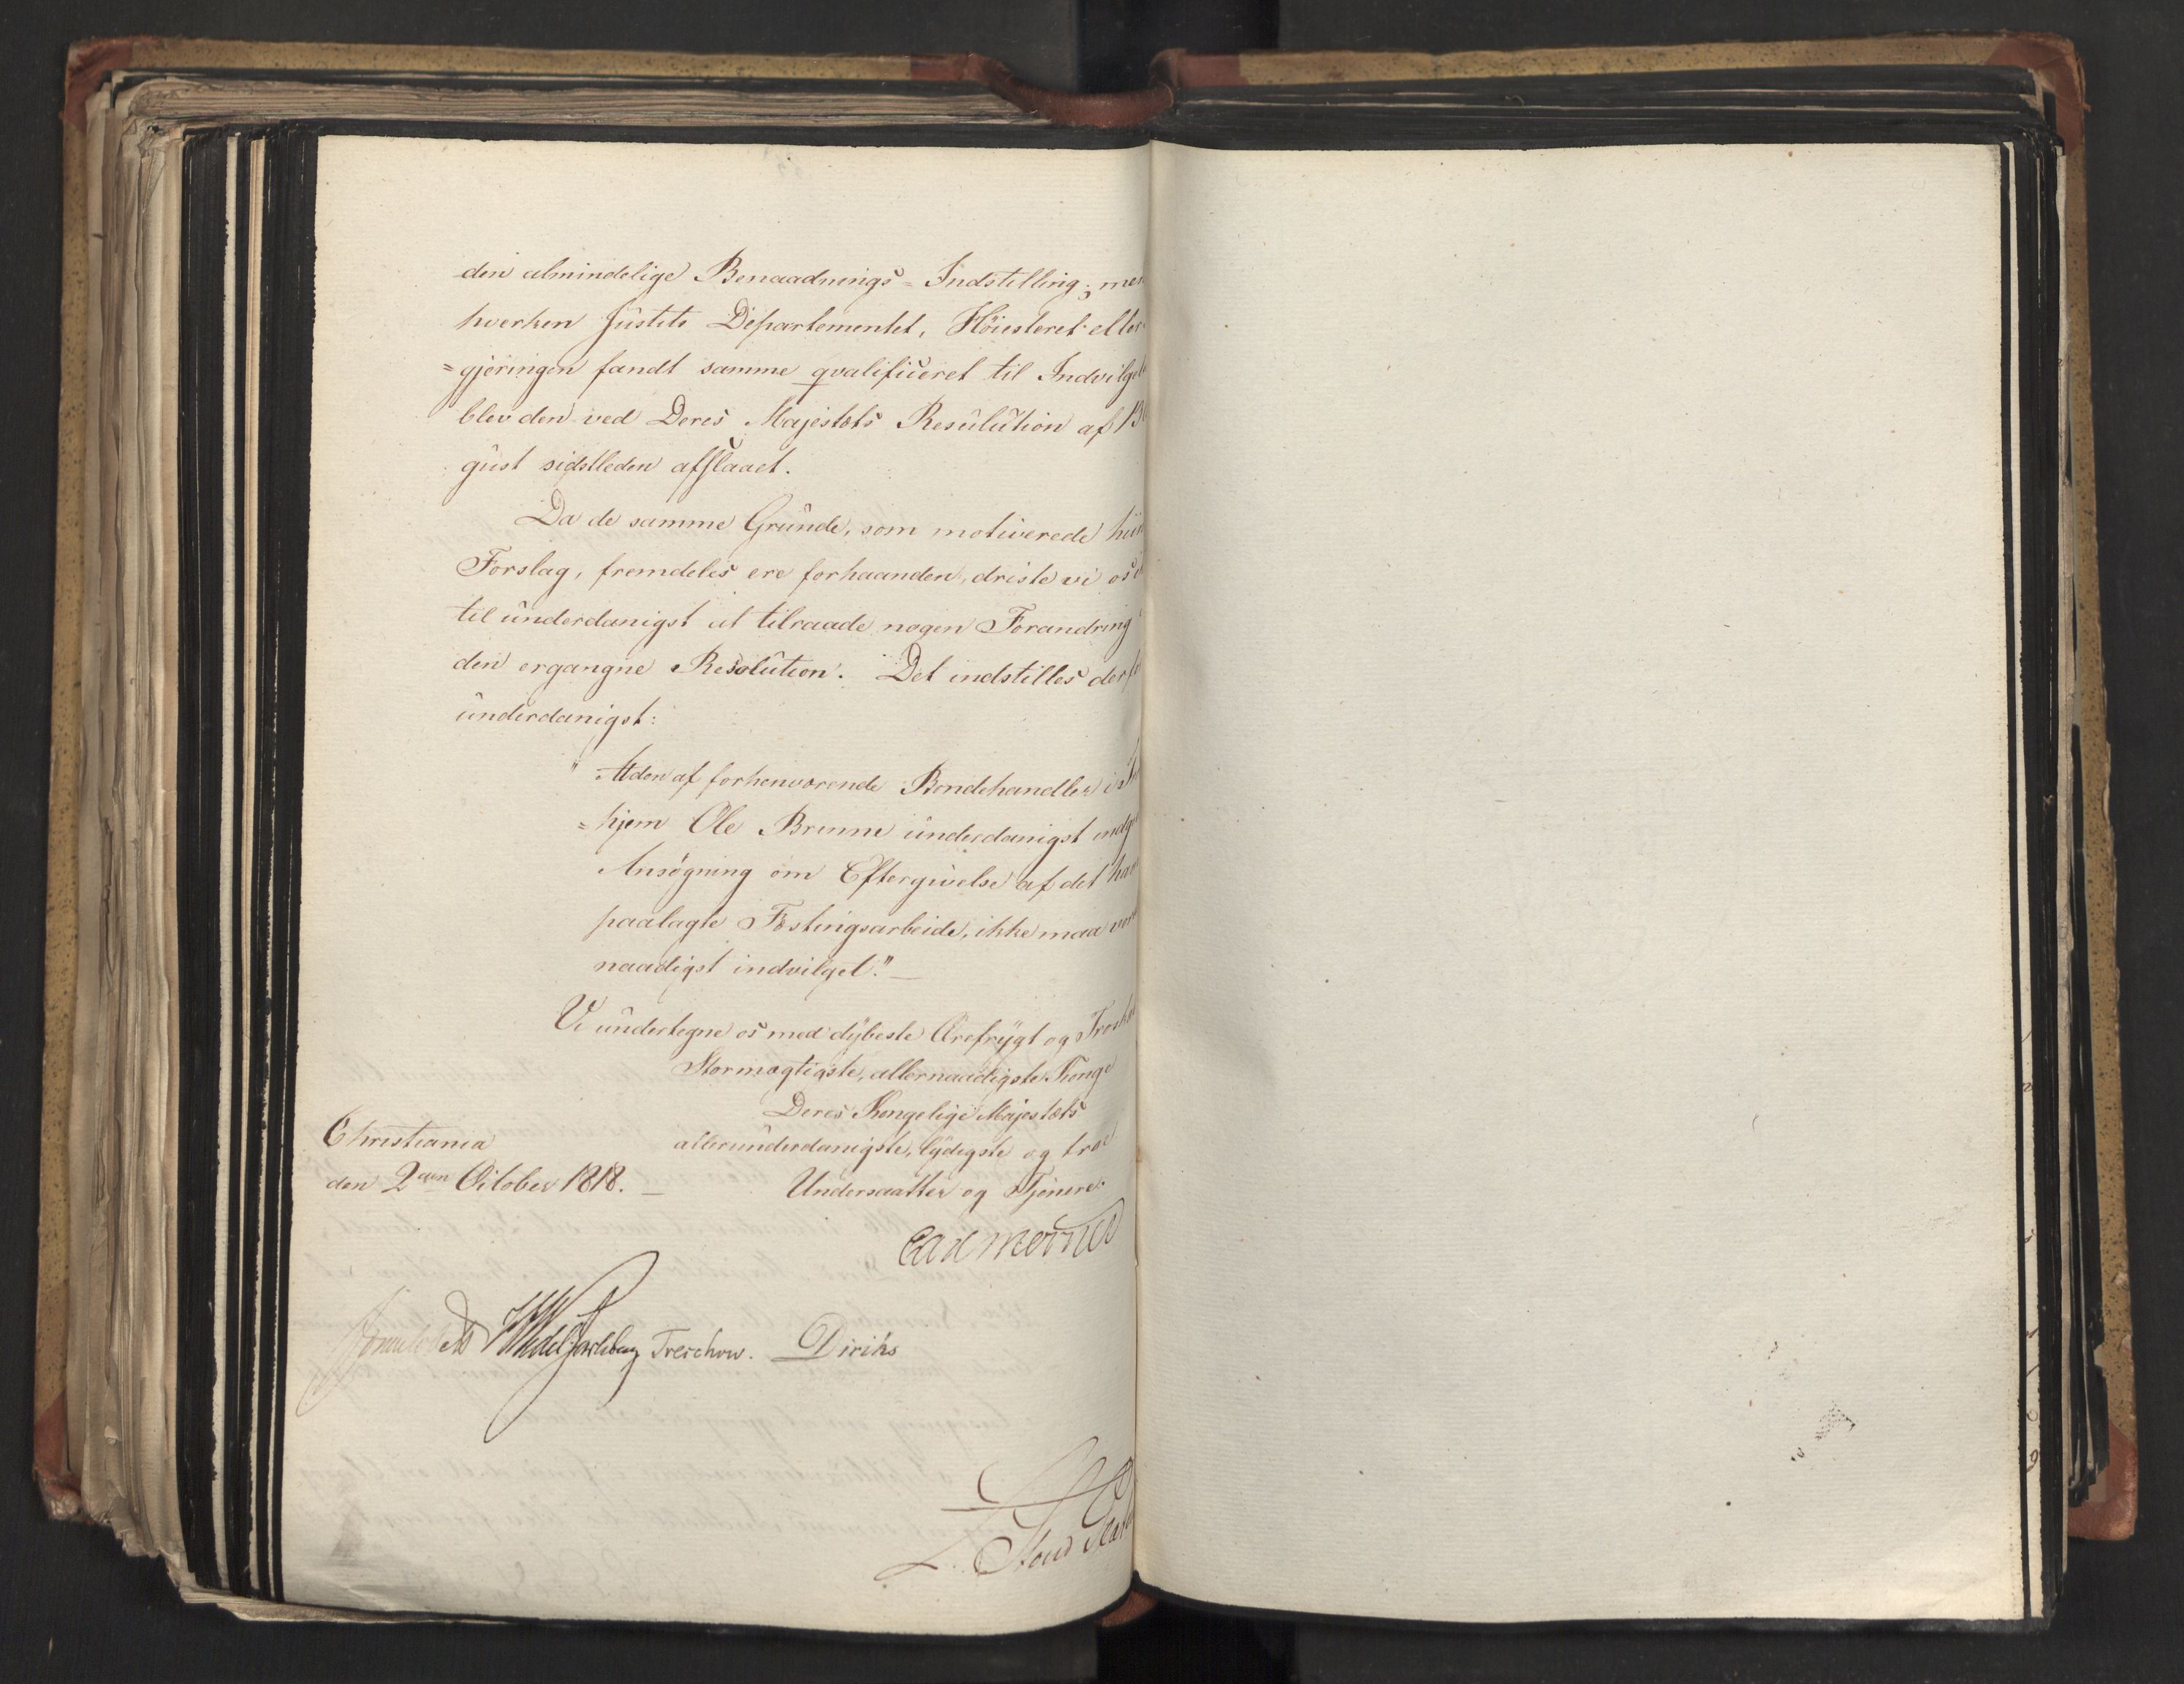 den almindelige Benaadnings=Indstilling; men
hverken Justits Departementet, Höiesteret eller
=gjeringen fandt samme qvalificeret til Indvilgel
blev den ved Deres Majestæts Resulution af 13
gust sidstleden afslaaet.
Da de samme Grunde, som motiverede hiin
Forslag, fremdeles ere forhaanden, driste vi os
til underdanigst at tilraade nogen Forandring
den ergangne Resolution. Det indstilles derfo
underdanigst:
"At den af forhenværende Bondehandler i
=hjem Ole underdanigst indgi
Ansögning om Eftergivelse af det ham
paalagte Fæstingsarbeide, ikke maa vor
naadigst indvilget." _
Vi undertegne os med dybeste Ærefrygt og Trosk
Stormægtigste, allernaadigste Konge
Deres Kongelige Majestæts
allerunderdanigste, lydigste og troe
Christiania
den 2den October 1818. _
Undersaatter og Tjenere.
Carl Mörner
Sommerhielm Wedel Jarlsberg Treschow. Diriks